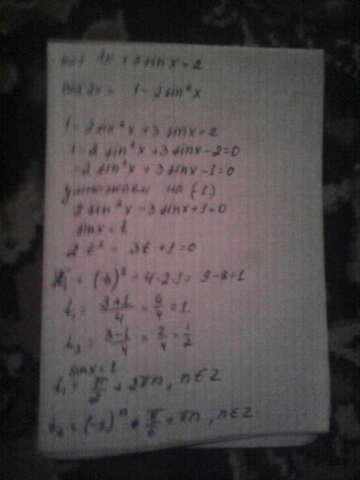 2x + 3 sin x = 2
cos 2x = 1 - 2 sin²x
1 - 2 sin²x + 3 sin x = 2
1 - 2 sin²x + 3 sin x - 2 = 0
-2 sin²x + 3 sin x - 1 = 0
умножаем на (-1)
2 sin²x - 3 sin x + 1 = 0
sin x = t
2t² - 3t + 1 = 0
= (-3)² - 4·2·1 = 9 - 8 = 1
t₁ = 3+1/4 = 4/4 = 1
t₂ = 3-1/4 = 2/4 = 1/2
sin x = 1
t₁ = π/2 + 2πn, n∈Z
t₂ = (-1)ⁿ · π/6 + πn, n∈Z